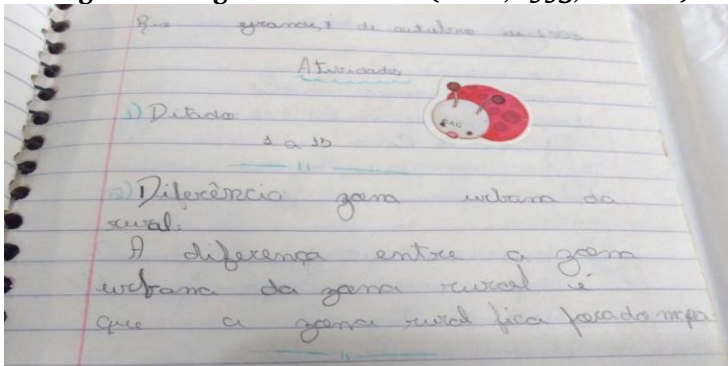 Rio grande, 7 de outubro de 1993
Atividades
1) Ditado
1 a 13
2) Diferência zona urbana da
rural:
A diferença entre a zona
urbana da zona rural é
que a zona rural fica